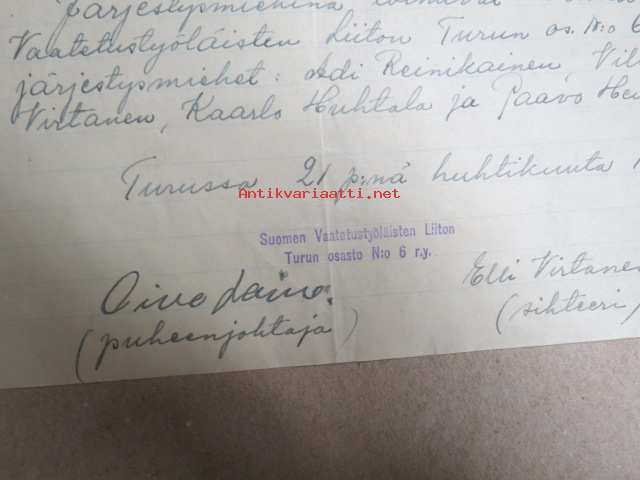 Järjestysmiehinä toimivat
Vaatetustyöläisten Liiton Turun os. N:o 6
järjestysmiehet: Adi Reinikainen, Vil
Virtanen, Kaarlo Huhtala ja Paavo Hei
Turussa 21 p:nä huhtikuuta 1
Antikvariaatti.net
Suomen Vaatetustyöläisten Liiton
Turun osasto N:o 6 r.y.
Oiva Laine
Elli Virtanen
(puheenjohtaja)
(sihteeri)